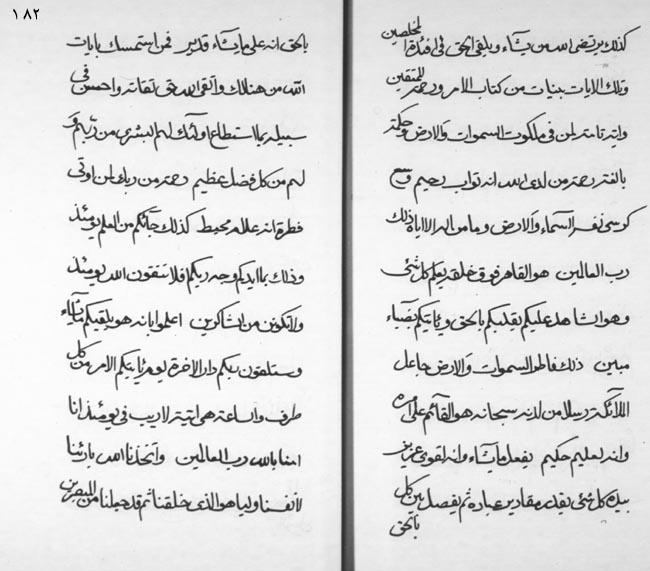 كذلك يرتضى الله من يشاء ويلقي الحق في افئدة المخلصين
وتلك الايات بينات من كتاب الامر ورحمة للمتقين
واية تامة لمن في ملكوت السموات والارض وحكمة
بالغة رحمة من لدى الله انه تواب رحيم وسع
كرسى نفسه السماء والارض وما من اله الا اياه ذلك
رب العالمين هو القاهر فوق خلقه يعلم كل شئ
وهو الشاهد عليكم يقلبكم بالحق ويأتيكم بضياء
مبين ذلك فاطر السموات والارض جاعل
الملآئكة رسلا من لدنه سبحانه هو القآئم على امره
وانه لعليم حكيم يفعل ما يشاء وانه لقوى عزيز
بيده كل شئ يقدر مقادير عباده ثم يفصل بين كل
بالحق
١٨٢
بالحق انه على ما يشاء قدير فمن استمسك بايات
الله من هنالك واتقى الله حق تقاته واحسن في
سبيله بما استطاع اولئك لهم البشرى من ربهم و
لهم من كل فضل عظيم رحمة من ربك لمن اوتى
فطرة انه علام محيط كذلك جآئكم من العلم يومئذ
وذلك بما ايدكم وجه ربكم فلا تتقون الله يومئذ
ولا تكونن من الشاكرين اعلموا بانه هو يلقيكم ما يشاء
وستلقون ربكم دار الاخرة يوم يأتيكم الامر من كل
طرف والساعة هى اتية لا ريب في يومئذ انا
امنا بالله رب العالمين واتخذنا الله بارئنا
لانفسنا وليا هو الذى خلقنا ثم قد جعلنا من المبصرين